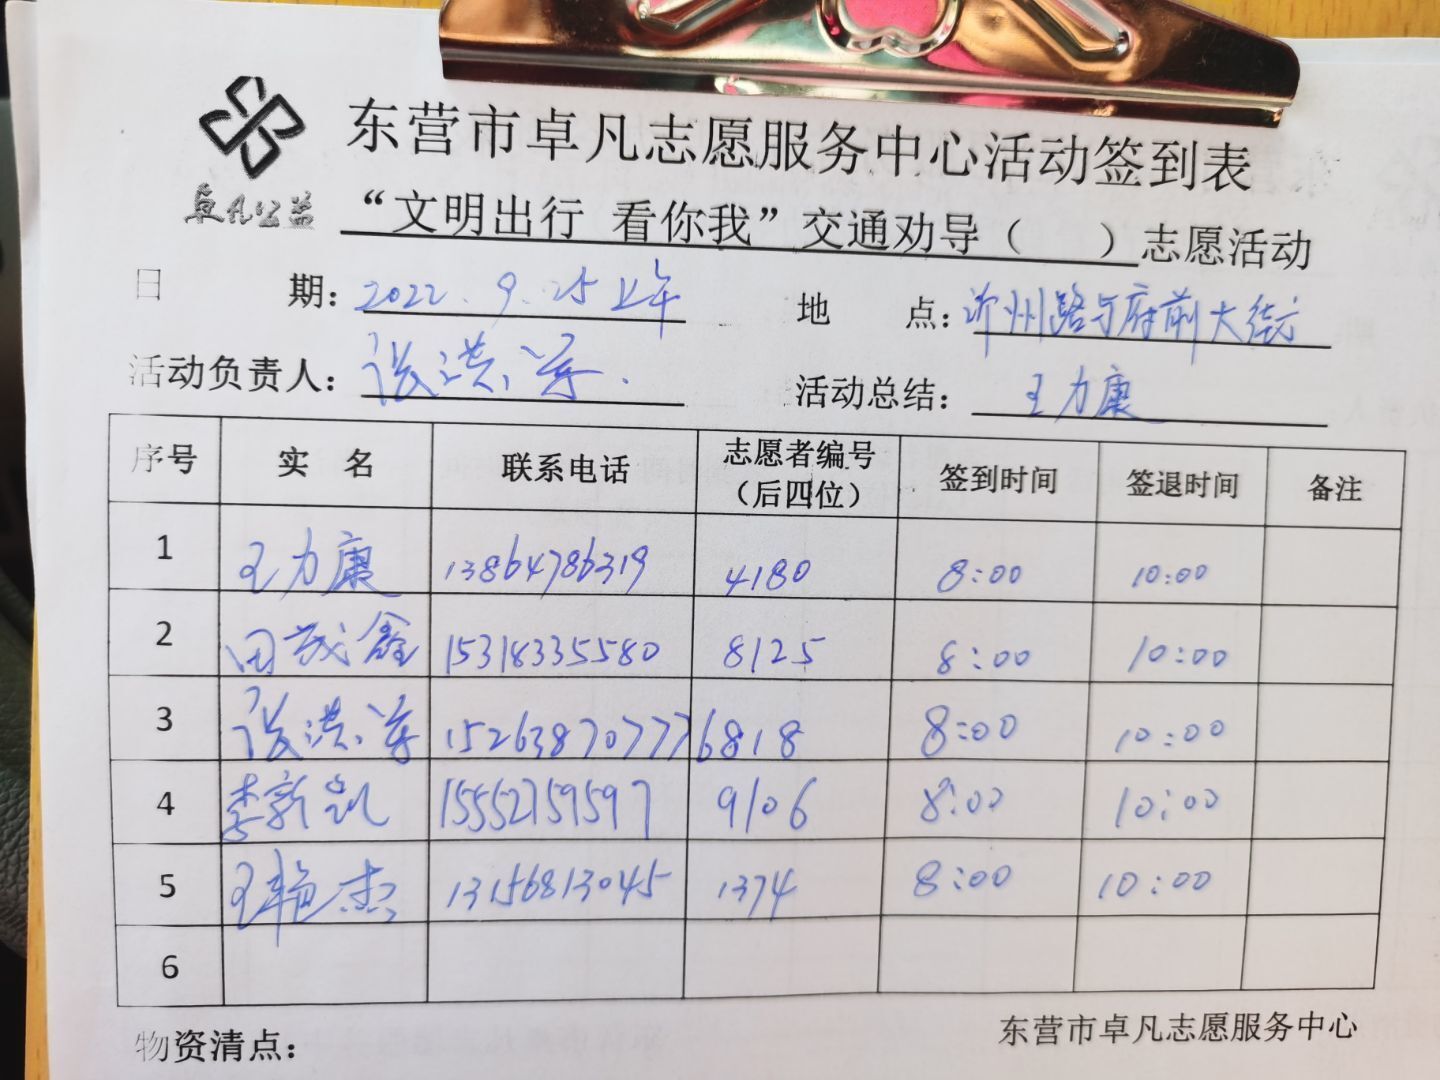 东营市卓凡志愿服务中心活动签到表
卓凡公益
“文明出行 看你我”交通劝导（ ）志愿活动
日 期：2022.9.25上午 地 点：沂州路与府前大街
活动负责人：张洪军. 活动总结：王力康
序号 实 名 联系电话 志愿者编号（后四位） 签到时间 签退时间 备注
1 王力康 13864786319 4180 8:00 10:00
2 田茂鑫 15318335580 8125 8:00 10:00
3 张洪军 15263870777 6818 8:00 10:00
4 李新凯 15552759597 9106 8:00 10:00
5 王艳杰 13156813045 1374 8:00 10:00
6
物资清点：
东营市卓凡志愿服务中心